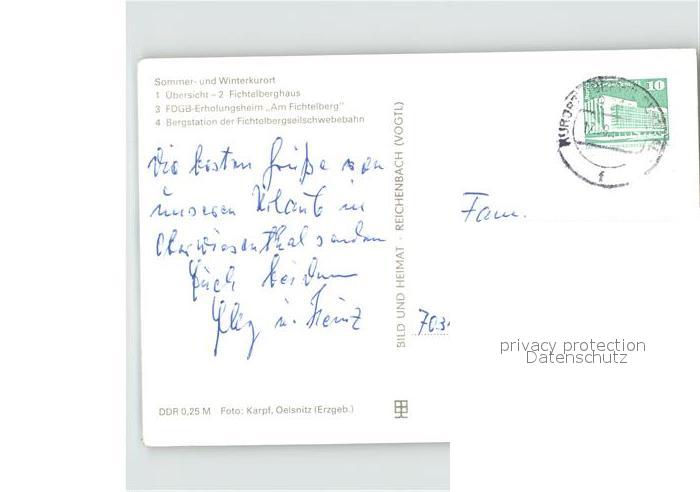 Sommer- und Winterkurort
1 Übersicht – 2 Fichtelberghaus
3 FDGB-Erholungsheim „Am Fichtelberg"
4 Bergstation der Fichtelbergseilschwebebahn
Die besten Grüße von
unseren Urlaub in
Oberwiesenthal senden
Euch beiden
u. Heinz
BILD UND HEIMAT · REICHENBACH (VOGTL)
10
KURORT
f
Fam.
703
privacy protection
Datenschutz
DDR 0,25 M Foto: Karpf, Oelsnitz (Erzgeb.)